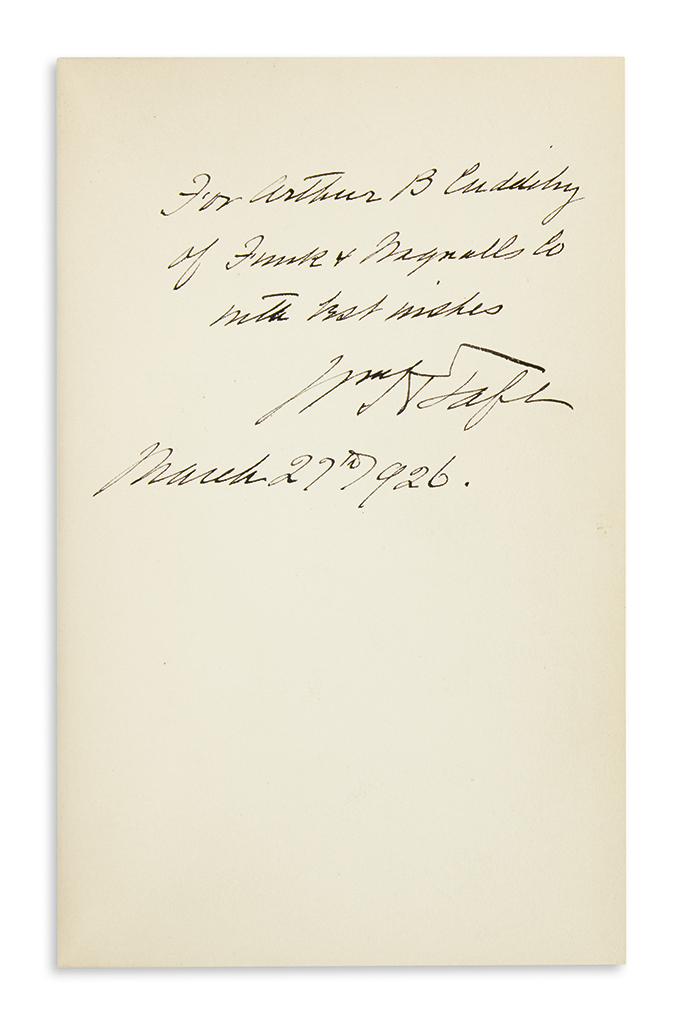 For Arthur B Cuddihy
of Funk & Wagnalls Co
with best wishes
Wm H Taft
March 27th 1926.